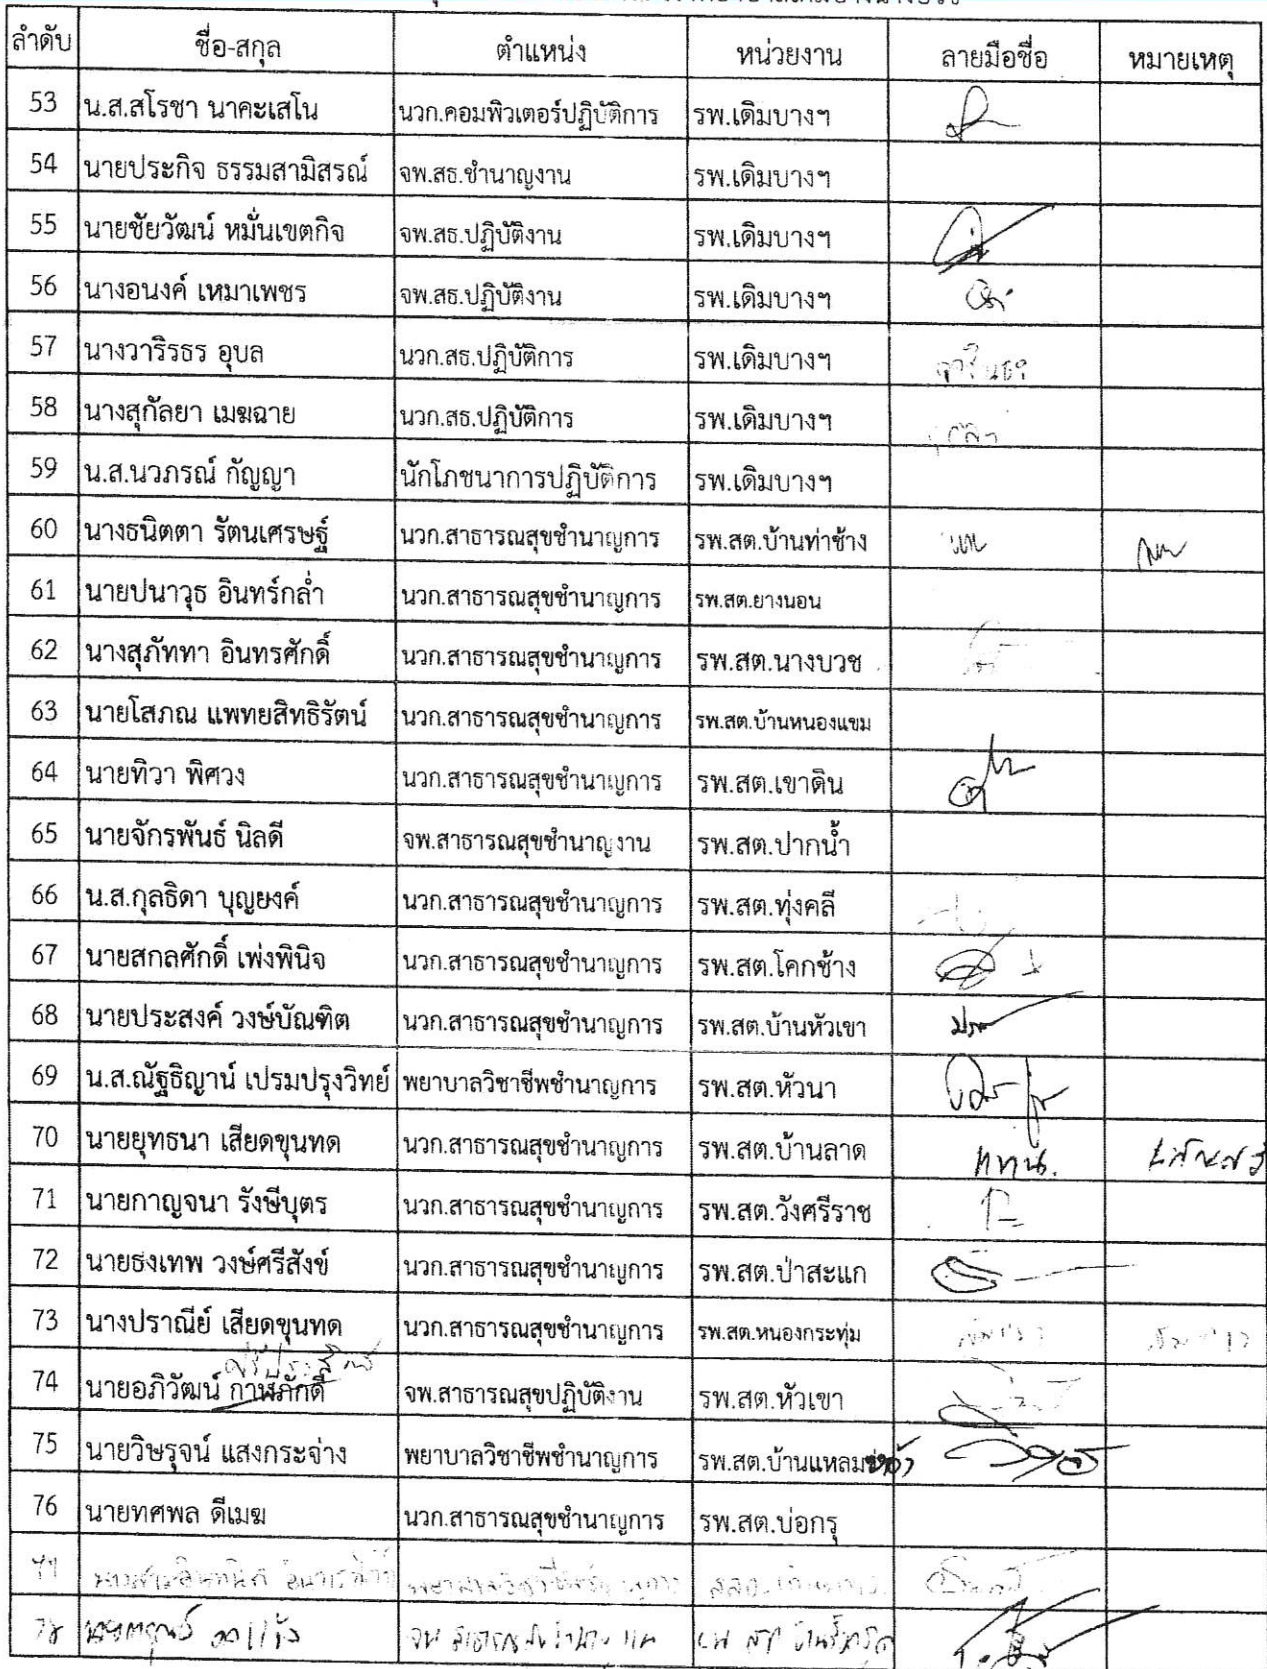 ลำดับ ชื่อ-สกุล ตำแหน่ง หน่วยงาน ลายมือชื่อ หมายเหตุ
53 น.ส.สโรชา นาคะเสโน นวก.คอมพิวเตอร์ปฏิบัติการ รพ.เดิมบางฯ
54 นายประกิจ ธรรมสามิสรณ์ จพ.สธ.ชำนาญงาน รพ.เดิมบางฯ
55 นายชัยวัฒน์ หมั่นเขตกิจ จพ.สธ.ปฏิบัติงาน รพ.เดิมบางฯ
56 นางอนงค์ เหมาเพชร จพ.สธ.ปฏิบัติงาน รพ.เดิมบางฯ
57 นางวาริรธร อุบล นวก.สธ.ปฏิบัติการ รพ.เดิมบางฯ
58 นางสุกัลยา เมฆฉาย นวก.สธ.ปฏิบัติการ รพ.เดิมบางฯ
59 น.ส.นวภรณ์ กัญญา นักโภชนาการปฏิบัติการ รพ.เดิมบางฯ
60 นางธนิตตา รัตนเศรษฐ์ นวก.สาธารณสุขชำนาญการ รพ.สต.บ้านท่าช้าง
61 นายปนาวุธ อินทร์กล่ำ นวก.สาธารณสุขชำนาญการ รพ.สต.ยางนอน
62 นางสุภัททา อินทรศักดิ์ นวก.สาธารณสุขชำนาญการ รพ.สต.นางบวช
63 นายโสภณ แพทยสิทธิรัตน์ นวก.สาธารณสุขชำนาญการ รพ.สต.บ้านหนองแขม
64 นายทิวา พิศวง นวก.สาธารณสุขชำนาญการ รพ.สต.เขาดิน
65 นายจักรพันธ์ นิลดี จพ.สาธารณสุขชำนาญงาน รพ.สต.ปากน้ำ
66 น.ส.กุลธิดา บุญยงค์ นวก.สาธารณสุขชำนาญการ รพ.สต.ทุ่งคลี
67 นายสกลศักดิ์ เพ่งพินิจ นวก.สาธารณสุขชำนาญการ รพ.สต.โคกช้าง
68 นายประสงค์ วงษ์บัณฑิต นวก.สาธารณสุขชำนาญการ รพ.สต.บ้านหัวเขา
69 น.ส.ณัฐธิญาน์ เปรมปรุงวิทย์ พยาบาลวิชาชีพชำนาญการ รพ.สต.หัวนา
70 นายยุทธนา เสียดขุนทด นวก.สาธารณสุขชำนาญการ รพ.สต.บ้านลาด
71 นายกาญจนา รังษีบุตร นวก.สาธารณสุขชำนาญการ รพ.สต.วังศรีราช
72 นายธงเทพ วงษ์ศรีสังข์ นวก.สาธารณสุขชำนาญการ รพ.สต.ป่าสะแก
73 นางปราณีย์ เสียดขุนทด นวก.สาธารณสุขชำนาญการ รพ.สต.หนองกระทุ่ม
74 นายอภิวัฒน์ จพ.สาธารณสุขปฏิบัติงาน รพ.สต.หัวเขา
75 นายวิษรุจน์ แสงกระจ่าง พยาบาลวิชาชีพชำนาญการ รพ.สต.บ้านแหลม
76 นายทศพล ดีเมฆ นวก.สาธารณสุขชำนาญการ รพ.สต.บ่อกรุ
77
78